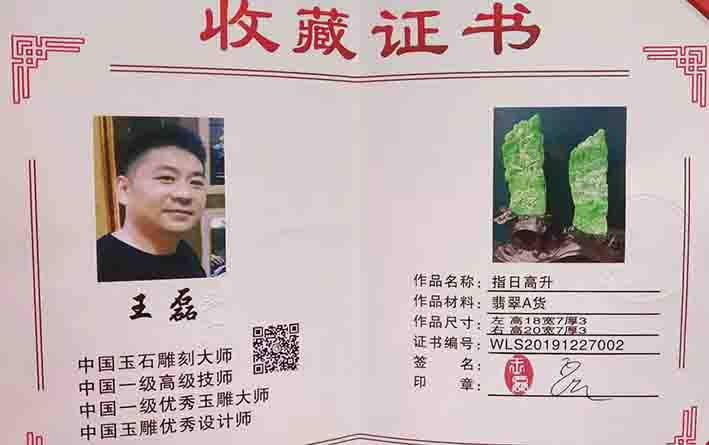 收藏证书
王磊
中国玉石雕刻大师
中国一级高级技师
中国一级优秀玉雕大师
中国玉雕优秀设计师
作品名称：指日高升
作品材料：翡翠A货
作品尺寸：左 高18宽7厚3
右 高20宽7厚3
证书编号：WLS20191227002
签 名：
印 章：